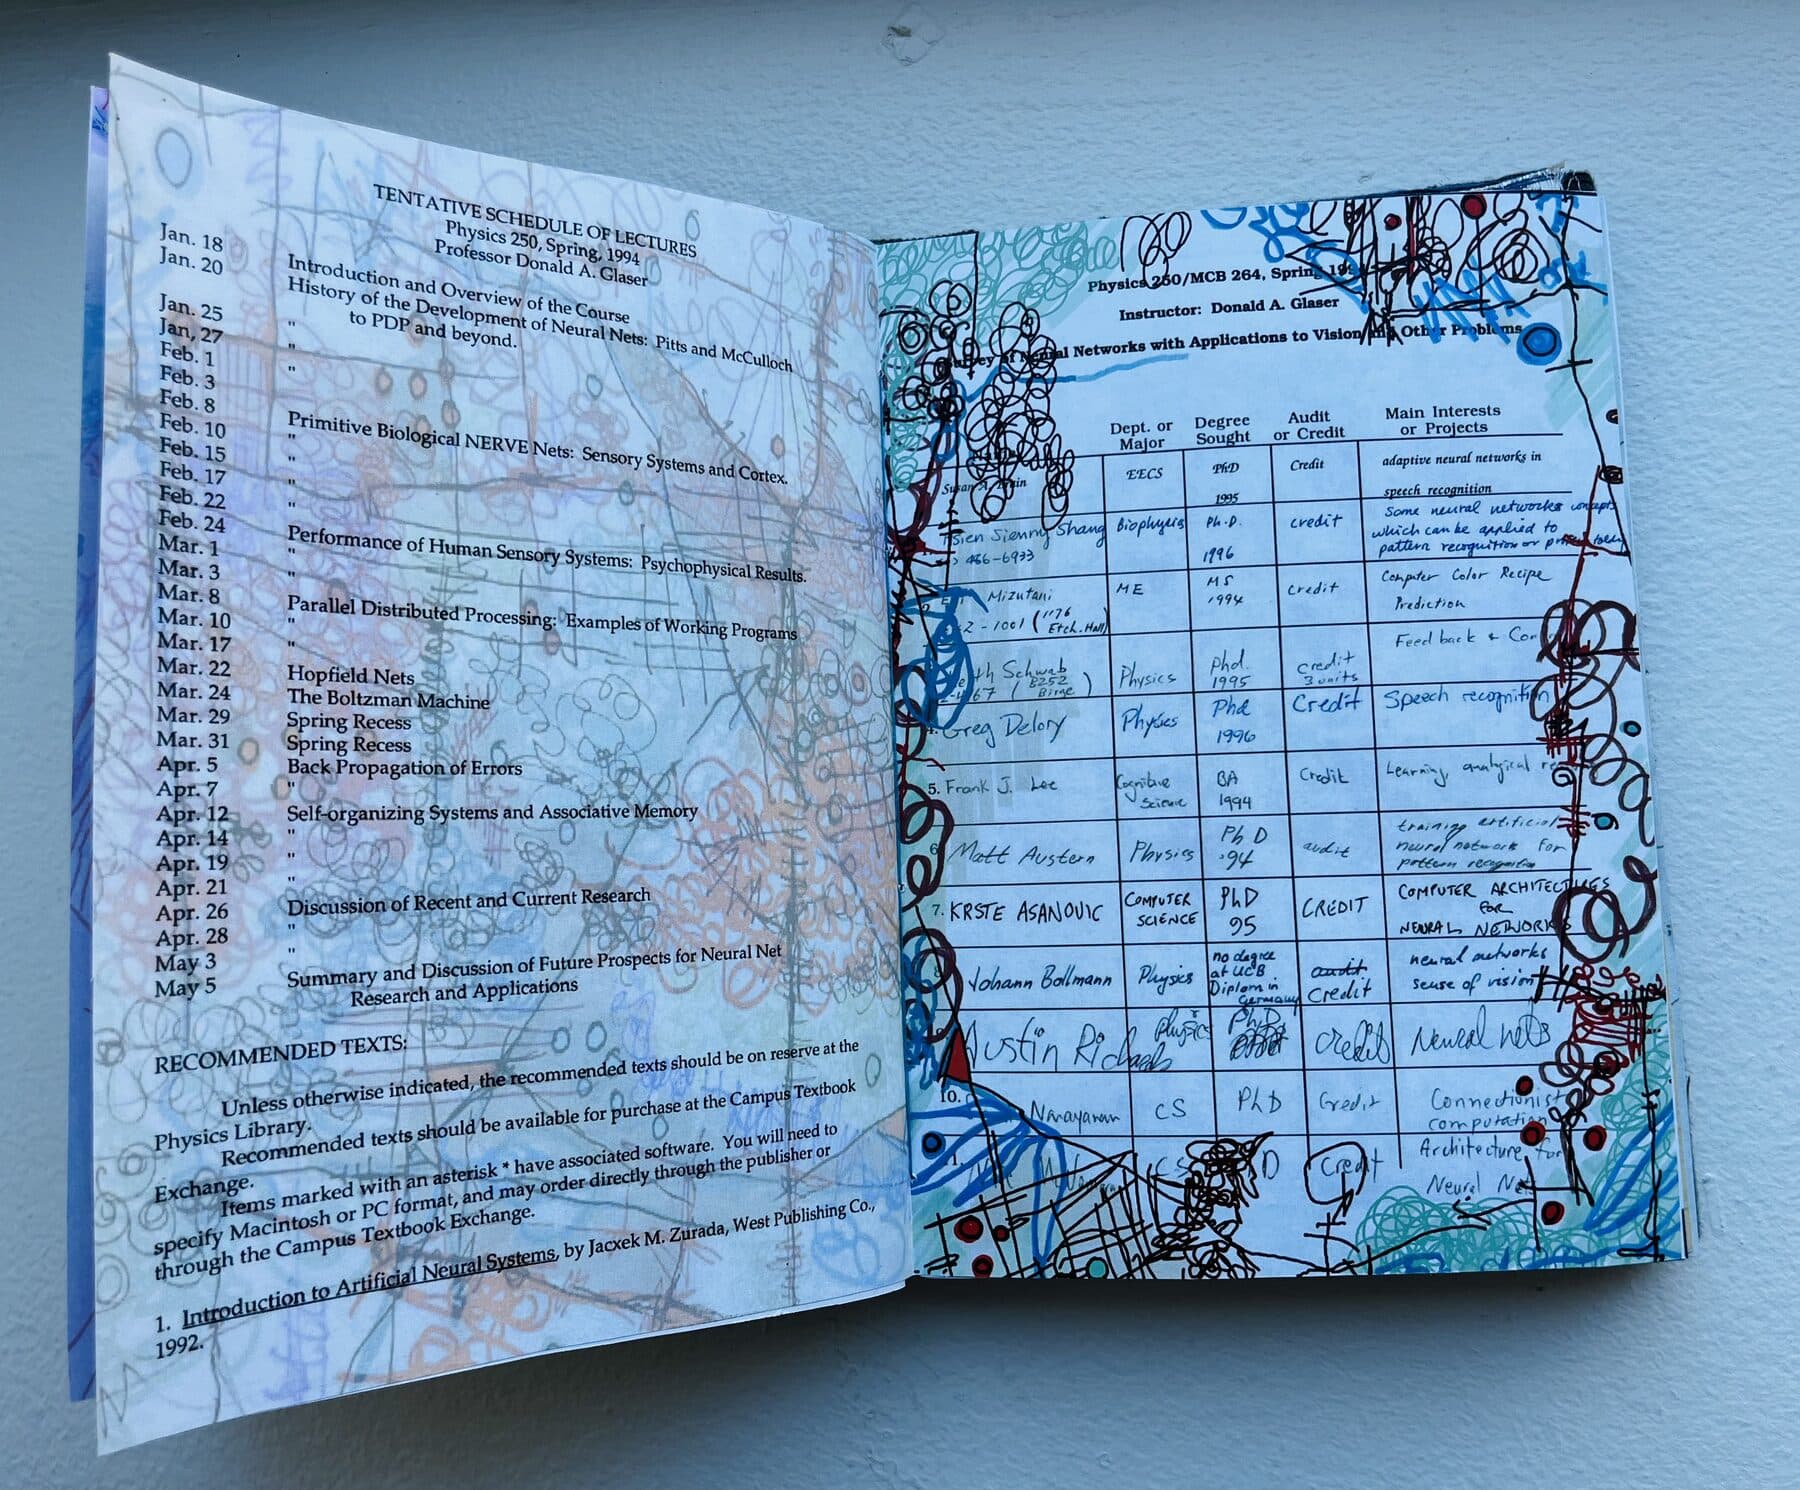 TENTATIVE SCHEDULE OF LECTURES
Physics 250, Spring, 1994
Professor Donald A. Glaser
Jan. 18 Introduction and Overview of the Course
Jan. 20 History of the Development of Neural Nets: Pitts and McCulloch
to PDP and beyond.
Jan. 25 "
Jan, 27 "
Feb. 1 "
Feb. 3 Primitive Biological NERVE Nets: Sensory Systems and Cortex.
Feb. 8 "
Feb. 10 "
Feb. 15 "
Feb. 17 "
Feb. 22 Performance of Human Sensory Systems: Psychophysical Results.
Feb. 24 "
Mar. 1 "
Mar. 3 Parallel Distributed Processing: Examples of Working Programs
Mar. 8 "
Mar. 10 "
Mar. 17 Hopfield Nets
Mar. 22 The Boltzman Machine
Mar. 24 Spring Recess
Mar. 29 Spring Recess
Mar. 31 Back Propagation of Errors
Apr. 5 "
Apr. 7 Self-organizing Systems and Associative Memory
Apr. 12 "
Apr. 14 "
Apr. 19 Discussion of Recent and Current Research
Apr. 21 "
Apr. 26 "
Apr. 28 Summary and Discussion of Future Prospects for Neural Net
May 3 Research and Applications
May 5
RECOMMENDED TEXTS:
Unless otherwise indicated, the recommended texts should be on reserve at the
Physics Library.
Recommended texts should be available for purchase at the Campus Textbook
Exchange.
Items marked with an asterisk * have associated software. You will need to
specify Macintosh or PC format, and may order directly through the publisher or
through the Campus Textbook Exchange.
1. Introduction to Artificial Neural Systems, by Jacxek M. Zurada, West Publishing Co.,
1992.
Physics 250/MCB 264, Spring
Instructor: Donald A. Glaser
Survey of Neural Networks with Applications to Vision and Other Problems
Dept. or Major Degree Sought Audit or Credit Main Interests or Projects
Susan A. EECS PhD 1995 Credit adaptive neural networks in speech recognition
Sienny Shang 486-6933 Biophysics Ph.D. 1996 credit Some neural networks concepts which can be applied to pattern recognition or
Mizutani 2-1001 (1176 Etch. Hall) ME MS 1994 credit Computer Color Recipe Prediction
Schwab (B252 Birge) Physics Phd. 1995 credit 3 units Feedback &
4. Greg Delory Physics Phd 1996 Credit Speech recognition
5. Frank J. Lee Cognitive Science BA 1994 Credit Learning, analogical
6. Matt Austern Physics Ph D '94 audit training artificial neural network for pattern recognition
7. KRSTE ASANOVIC COMPUTER SCIENCE PhD 95 CREDIT COMPUTER ARCHITECTURES for NEURAL NETWORKS
8 Johann Bollmann Physics no degree at UCB Diplom in Germany audit Credit neural networks sense of vision
Austin Richards physics Ph.D. credit Neural nets
10. Narayanan CS PhD Credit Connectionist computation
CS Credit Architecture for Neural Net